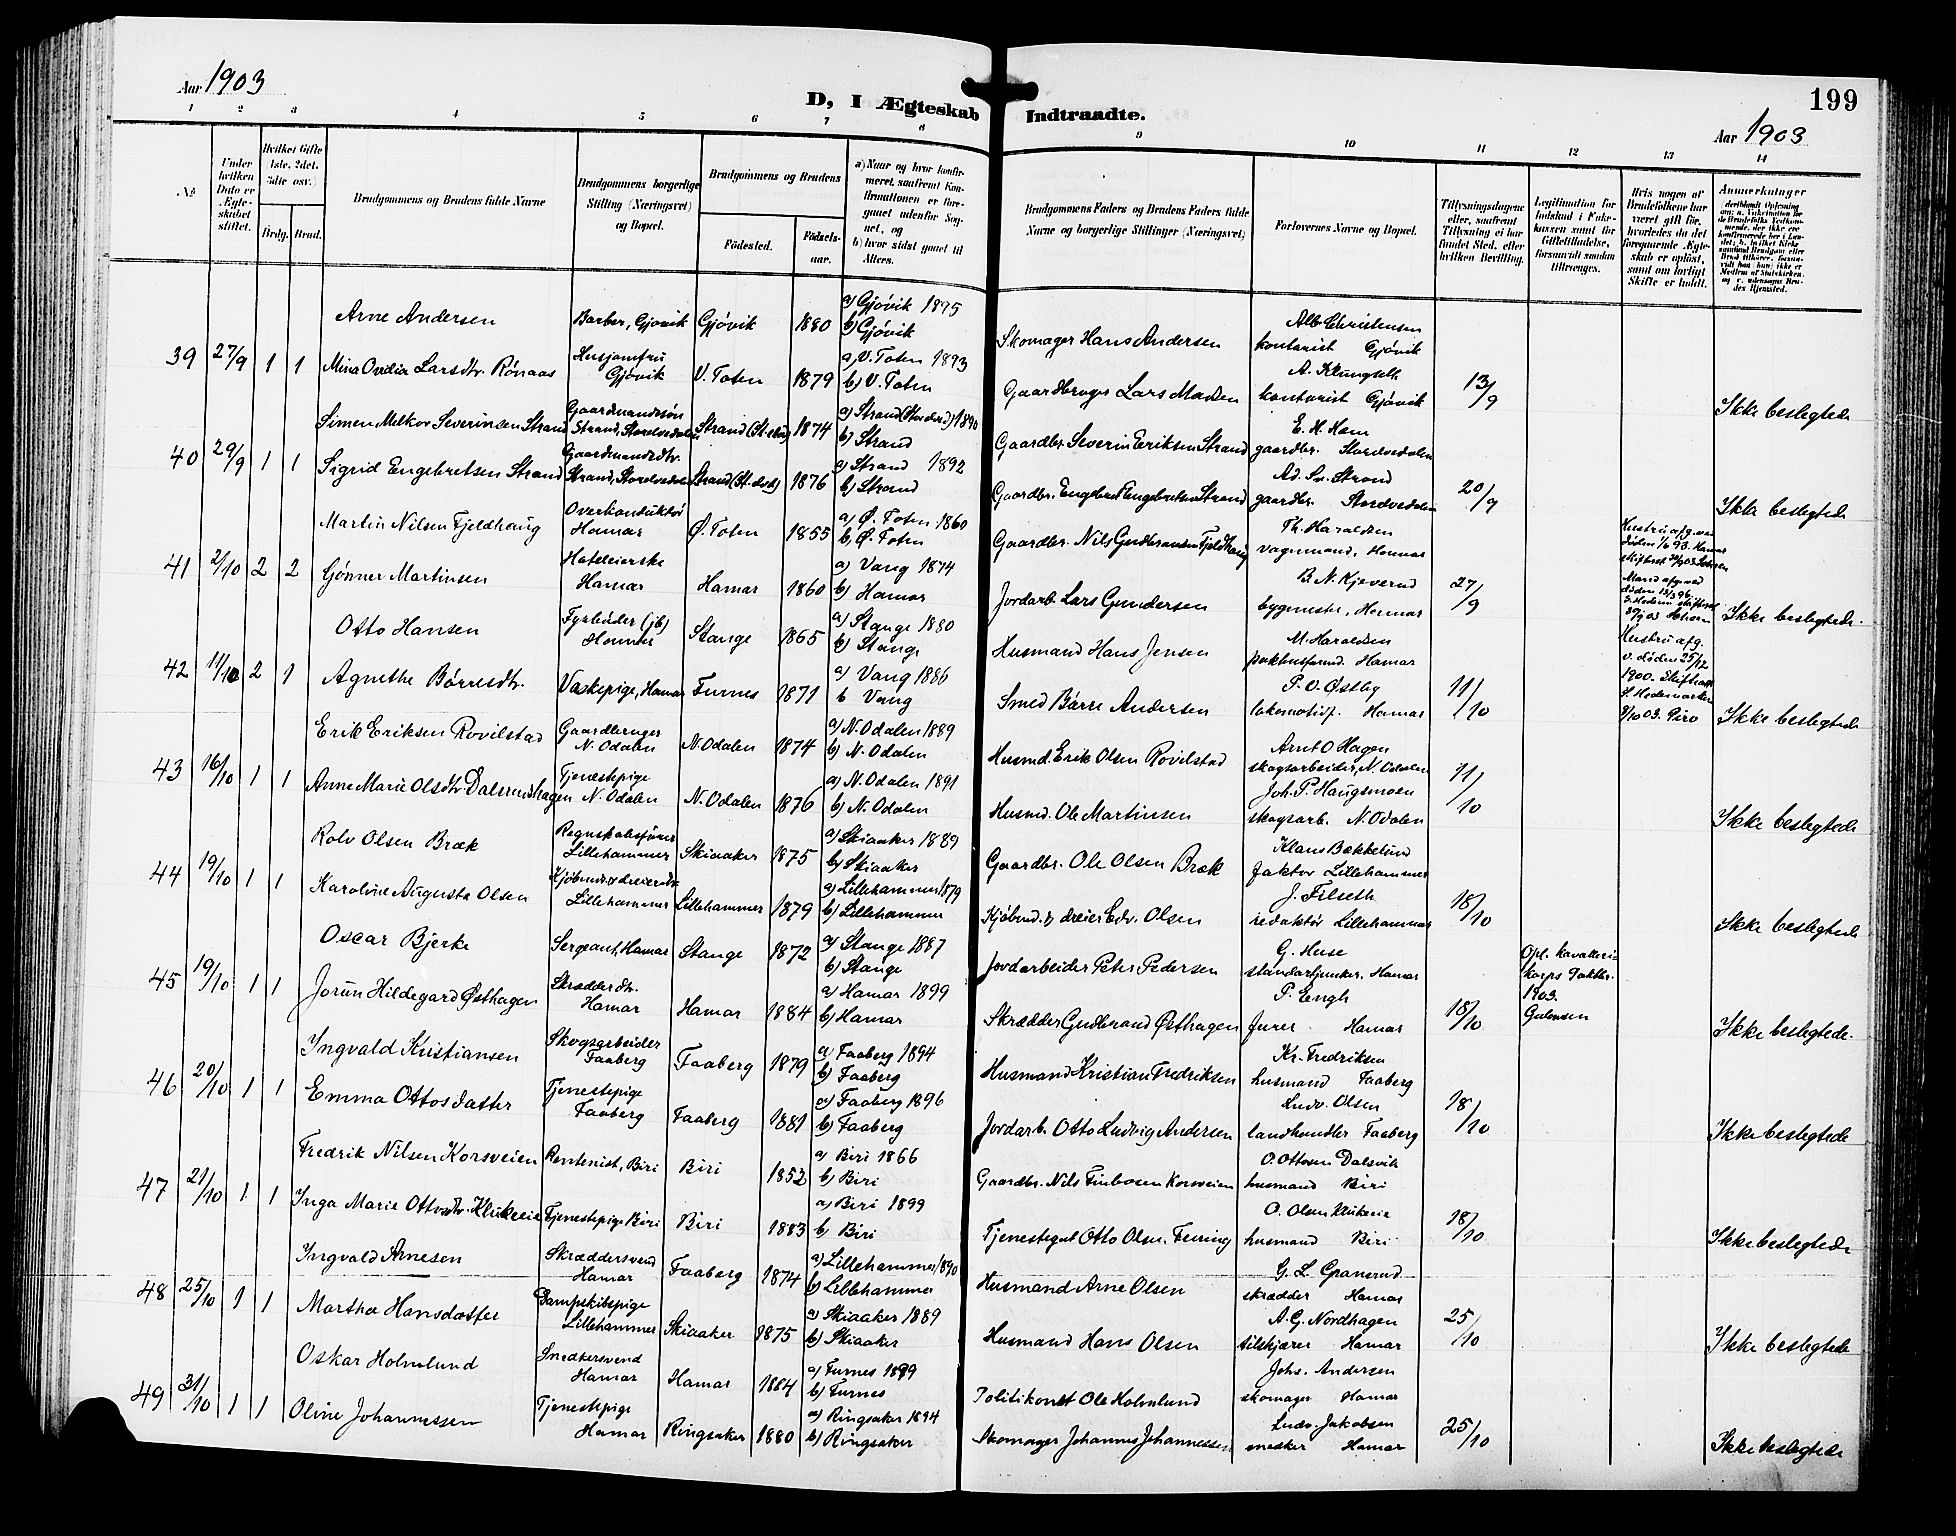 Aar 1903
D, I Ægteskab Indtraadte.
199
Aar 1903
1 2 3 4 5 6 7 8 9 10 11 12 13 14
No
Under hvilken Dato er Ægteskabet stiftet.
Hvilket Gifte 1ste, 2det, 3die osv.)
Brdg. Brud.
Brudgommens og Brudens fulde Navne
Brudgommens borgerlige Stilling (Næringsvei) og Bopæl.
Brudgommens og Brudens
Fødested.
Fødselsaar.
a) Naar og hvor konfirmeret, saafremt Konfirmationen er foregaaet udenfor Sognet, og
b) hvor sidst gaaet til Alters.
Brudgommens Faders og Brudens Faders fulde Navne og borgerlige Stillinger (Næringsvei)
Forlovernes Navne og Bopæl.
Tillysningsdagene eller, saafremt Tillysning ei har fundet Sted, efter hvilken Bevilling.
Legitimation for Indskud i Enkekassen samt for Giftetilladelse, forsaavidt saadan tiltrænges.
Hvis nogen af Brudefolkene har været gift før, hvorledes da det foregaaende Ægteskab er opløst, samt om lovligt Skifte er holdt.
Anmerkninger
39 27/9 1 1
Arne Andersen Barber, Gjøvik Gjøvik 1880 a) Gjøvik 1895 b) Gjøvik Skomager Hans Andersen Alb Christensen kontorist Gjøvik
Mina Ovidia Larsdtr. Rønaas Husjomfru Gjøvik V. Toten 1879 a) V. Toten 1893 b) V. Toten Gaardbruger Lars Madsen A. Klungseth kontorist Gjøvik 13/9 Ikke beslegtede
40 29/9 1 1
Simen Melkior Severinsen Strand Gaardmandssøn Strand, Storelvedalen Strand 1874 a) Strand 1890 b) Strand Gaardbr. Severin Eriksen Strand E. H. Hem gaardbr. Storelvedalen
Sigrid Engebretsen Strand Gaardmandsdtr. Strand, Storelvedalen Strand 1876 a) Strand 1892 b) Strand Gaardbr. Engebret Engebretsen Strand Ad. Sv. Strand gaardbr. Storelvedalen 20/9 Ikke beslegtede
41 2/10 2 2
Martin Nilsen Fjeldhaug Overkonduktør Hamar Ø. Toten 1855 a) Ø. Toten 1860 b) Ø. Toten Gaardbr. Nils Gudbransen Fjeldhaug Th. Haraldsen vognmand, Hamar
Gønner Martinsen Hoteleierske Hamar Hamar 1860 a) Vang 1874 b) Hamar Jordarb. Lars Gundersen B. N. Kjeverud bygmester, Hamar 27/9 Ikke beslegtede.
42 11/10 2 1
Otto Hansen Fyrbøder (jb) Hamar Stange 1865 a) Stange 1880 b) Stange Husmand Hans Jensen M. Haraldsen pakhusformd. Hamar
Agnethe Børresdtr. Vaskepige, Hamar Furnes 1871 a) Vang 1886 b Vang Smed Børre Andersen P. O. Østby lokomotivf. Hamar 11/10 Hustru afg. v. døden 25/12 1900. Ikke beslegtede
43 16/10 1 1
Erik Eriksen Rovilstad Gaardbruger N. Odalen N. Odalen 1874 a) N. Odalen 1889 b) N. Odalen Husmd. Erik Olsen Rovilstad Arnt O Hagen skogsarbeider, N. Odalen
Anne Marie Olsdtr. Dalsrudshagen Tjenestepige N. Odalen N. Odalen 1876 a) N. Odalen 1891 b) N. Odalen Husmd. Ole Martinsen Joh. P. Haugsmoen skogsarb. N. Odalen 11/10 Ikke beslegtede
44 19/10 1 1
Rolv Olsen Bræk Regnskabsfører Lillehammer Skiaaker 1875 a) Skiaaker 1889 b) Skiaaker Gaardbr. Ole Olsen Bræk Klaus Bækkelund faktor Lillehammer
Karoline Augusta Olsen Lillehammer Lillehammer 1879 a) Lillehammer 1879 b) Lillehammer Kjøbmd. & dreier Edv. Olsen J. Filseth redaktør Lillehammer 18/10 Ikke beslegtede
45 19/10 1 1
Oscar Bjerke Sergeant, Hamar Stange 1872 a) Stange 1887 b) Stange Jordarbeider Peter Pedersen G. Huse standartjunker, Hamar
Jorun Hildegard Østhagen Skrædderdtr. Hamar Hamar 1884 a) Hamar 1899 b) Hamar Skrædder Gudbrand Østhagen P. Engh furer Hamar 18/10 Ikke beslegtede.
46 20/10 1 1
Ingvald Kristiansen Skogsarbeider Faaberg Faaberg 1879 a) Faaberg 1894 b) Faaberg Husmand Kristian Fredriksen Kr. Fredriksen husmand Faaberg
Emma Ottosdatter Tjenestepige Faaberg Faaberg 1881 a) Faaberg 1896 b) Faaberg Jordarb. Otto Ludvig Andersen Ludv. Olsen landhandler Faaberg 18/10 Ikke beslegtede
47 21/10 1 1
Fredrik Nilsen Korsveien Rentenist, Biri Biri 1852 a) Biri 1866 b) Biri Gaardbr. Nils Finbosen Korsveien O. Ottosen Dalsvik husmand Biri
Inga Marie Ottosdtr. Klukeie Tjenestepige Biri Biri 1883 a) Biri 1899 b) Biri Tjenestegut Otto Olsen Feiring O. Olsen Klukeie husmand Biri 18/10 Ikke beslegtede
48 25/10 1 1
Ingvald Arnesen Skræddersvend Hamar Faaberg 1874 a) Lillehammer 1890 b) Lillehammer Husmand Arne Olsen G. L. Granerud skrædder Hamar
Martha Hansdatter Dampskibspige Lillehammer Skiaaker 1875 a) Skiaaker 1889 b) Skiaaker Husmand Hans Olsen A. G. Nordhagen tilskjærer Hamar 25/10 Ikke beslegtede
49 31/10 1 1
Oskar Holmlund Snedkersvend Hamar Hamar 1884 a) Furnes 1899 b) Furnes Politikonst Ole Holmlund Johs. Andersen skomager Hamar
Oline Johannessen Tjenestepige Hamar Ringsaker 1880 a) Ringsaker 1894 b) Ringsaker Skomager Johannes Johannessen Ludv. Jakobsen Hamar 25/10 Ikke beslegtede